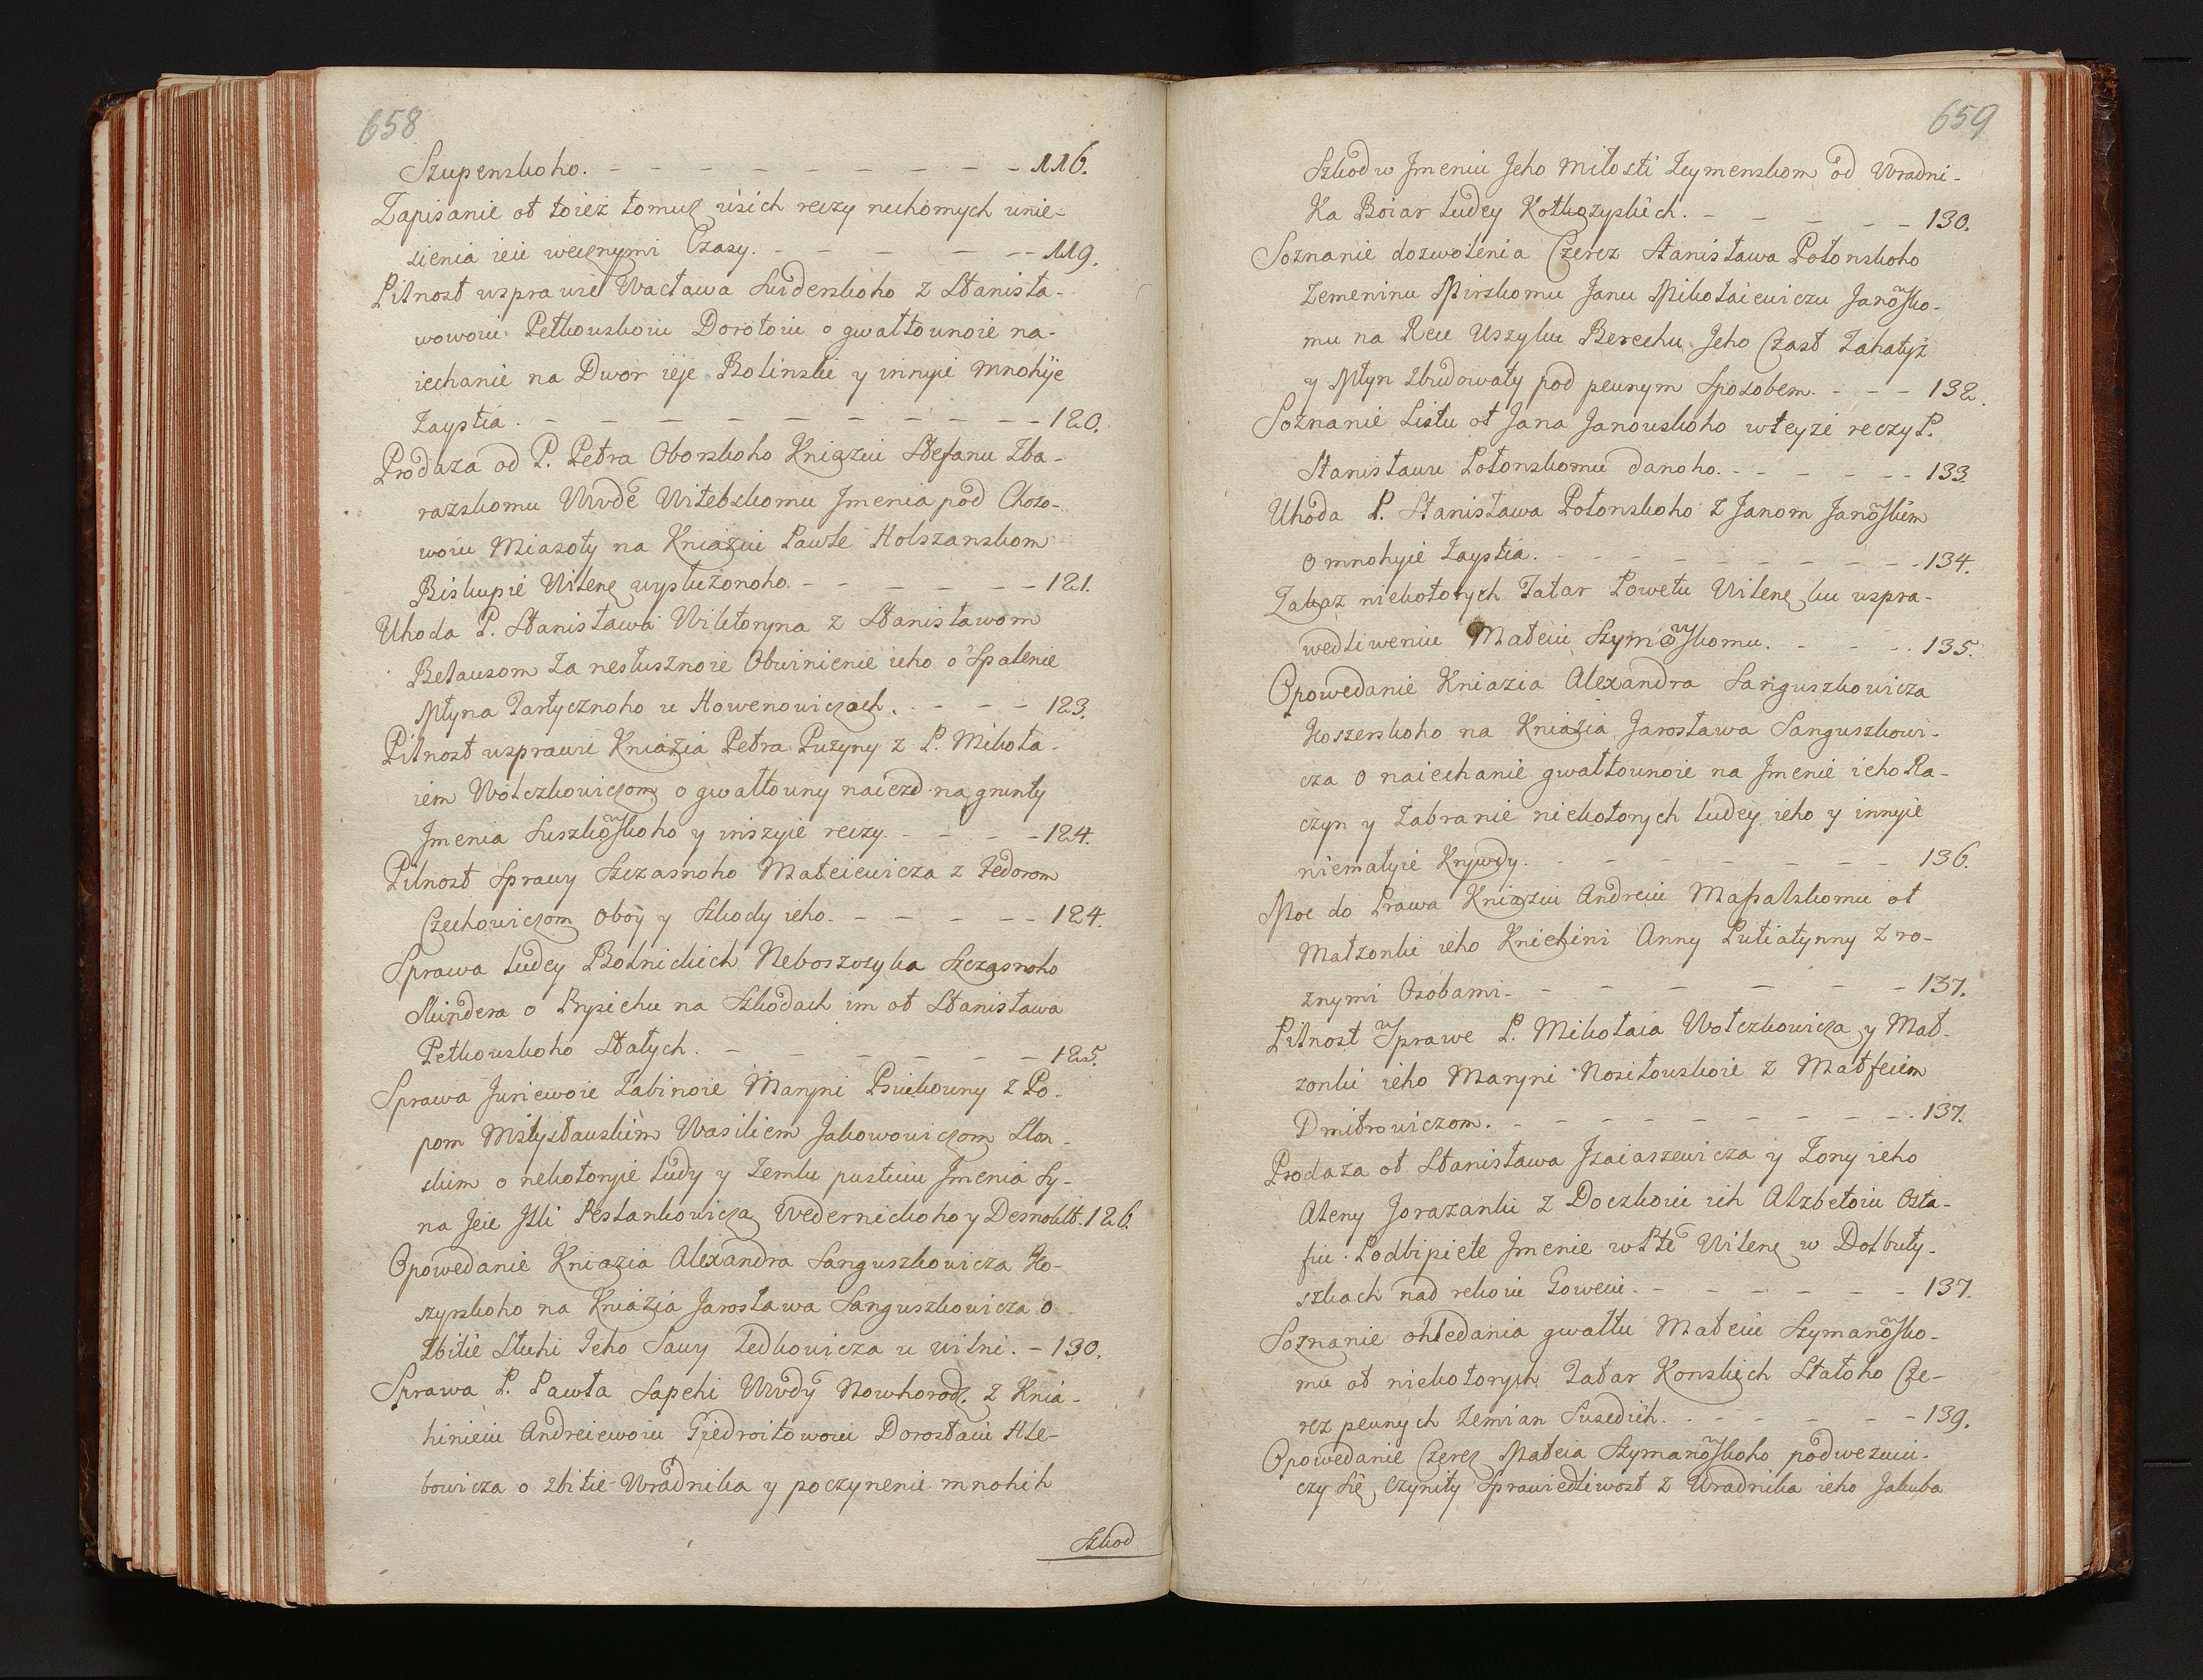 658
Szupenskoho. - - - - - - - - - 116.
Zapisanie ot toież tomuż wsich reczy ruchomych unie-
sienia ieie wecznymi Czasy. - - - - - - 119.
Pilnost wsprawie Wacława Swiderskoho z Stanisła-
wowoiu Petkowskoiu Dorotoiu o gwałtownoie na-
iechanie na Dwor ieie Rolinski y innyie mnohije
Zaystia. - - - - - - - - - 120.
Prodaża od P. Petra Oborskoho Kniaziu Stefanu Zba-
razskomu Wwdē Witebskomu Jmenia pod Choro-
woiu Miasoty na Kniaziu Pawle Holszanskom
Biskupie Wilenę wysłużonoho. - - - - - 121.
Uhoda P. Stanisława Wiktoryna z Stanisławom
Beławsom za nesłusznoie Obwinienie ieho o Spalenie
Młyna Tartycznoho u Howenowiczach. - - - - 123.
Pilnost wsprawie Kniazia Petra Puzyny z P. Mikoła-
iem Wołczkowiczom o gwałtowny naiezd na grunty
Jmenia Łuszkowskoho y inszyie reczy. - - - - 124.
Pilnost Sprawy Szczasnoho Mateiewicza z Fedorom
Czechowiczom oboy y Szkody ieho. - - - - 124.
Sprawa ludey Rotnickich Neboszczyka Szczasnoho
Skindera o Prysiehu na Szkodach im ot Stanisława
Petkowskoho Stałych. - - - - - - 125.
Sprawa Juriewoie Zabinoie Maryni Psiekowny z Po-
pom Mstysławskim Wasiliem Jakowowiczom Slon-
skim o nekotoryie ludy y Zemlu pustuiu Jmenia Sy-
na Jeie Jzki Pestankowicza Wedernickoho y Desnoklt. 126.
Opowedanie Kniazia Alexandra Sanguszkowicza Ko-
szyrskoho na Kniazia Jarosława Sanguszkowicza o
Zbitie Sluhi Jeho Sawy Fedkowicza u Wilni. - 130.
Sprawa P. Pawła Sapehi Wwdy Nowhorodz. z Knia-
hinieiu Andreiewoiu Giedroitowoiu Dorostaiu Hle-
bowicza o zbitie Uradnika y poczynenie mnohih
Szkod
659
Szkod w Jmeniu Jeho Miłosti Zeymenskom od Uradni-
ka Boiar ludey Kotkozyskich. - - - - - 130.
Soznanie dozwolenia Czerez Stanisława Połonskoho
Zemeninu Mirskomu Janu Mikołaiewiczu Janowsko-
mu na Rece Uszyku Berechu Jeho Czast Zahatyż
y Młyn Zbudowaty pod pewnym Sposobem. - - - 132.
Soznanie Listu ot Jana Janowskoho wteyże reczy P.
Stanisławu Połonskomu danoho. - - - - - 133.
Uhoda P. Stanisława Połonskoho z Janom Janowskim
o mnohyie Zaystia. - - - - - - - - 134.
Zakaz niekotorych Tatar Powetu Wilenę ku uspra-
wedliweniu Mateiu Szymowskomu. - - - - 135.
Opowedanie Kniazia Alexandra Sanguszkowicza
Koszerskoho na Kniazia Jarosława Sanguszkowi-
cza o naiechanie gwałtownoie na Jmenie ieho Ra-
czyn y Zabranie niekotorych ludey ieho y innyie
niemałyie Krywdy. - - - - - - - 136.
Moc do Prawa Kniaziu Andreiu Massalskomu ot
Małzonki ieho Kniehini Anny Putiatynny z ro-
znymi Osobami. - - - - - - - 137.
Pilnost wsprawe P. Mikołaia Wołczkowicza y Mał-
zonki ieho Maryni Nosiłowskoie z Matfeiem
Dmitrowiczom. - - - - - - - - 137.
Prodaza ot Stanisława Jzaiaszewicza y Zony ieho
Aleny Jorazanki z Doczkoiu ich Alzbetoiu Osta-
fiu Podbipiete Jmenie w Ptē Wilenę w Dołbuty-
szkach nad rekoiu Goweiu. - - - - - - 137.
Soznanie ohledania gwałtu Mateiu Szymanowsko-
mu ot niekotorych Tatar Konskich Stałoho Cze-
rez pewnych Zemian Susedich. - - - - - - 139.
Opowedanie Czerez Mateia Szymanowskoho podwezuiu-
czy Się Czynity Sprawiedliwost z Uradnika ieho Jakuba